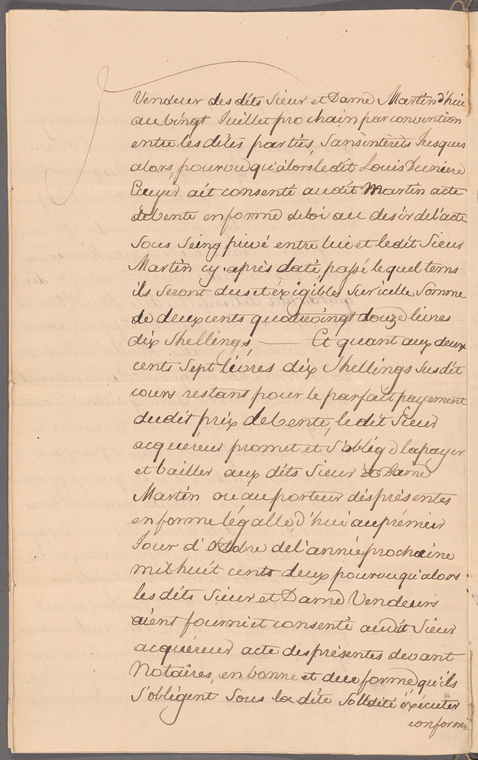 Vendeur des dits Sieur et Dame Martin d'hui
au vingt Juillet prochain par convention
entre les dites parties, Sans intérets Jusques
alors pourvu qu'alors le dit Louis Dunière
Ecuyer ait consenté audit Martin acte
de vente en forme de loi au desir de l'acte
Sous Seing privé entre lui et le dit Sieur
Martin cy-après daté passé lequel tems
ils seront dus et éxigibles sur icelle Somme
de deux cents quatrevingt douze livres
dix Shellings —— Et quant aux deux
cents Sept livres dix Shellings Susdit
cours restans pour le parfait payement
du dit prix de vente, le dit Sieur
acquéreur promet et S'oblige la payer
et bailler aux dits Sieur et Dame
Martin ou au porteur des présentes
en forme légalle, d'hui au prémier
Jour d'Octobre de l'année prochaine
mil huit cents deux pourvu qu'alors
les dits Sieur et Dame Vendeurs
aient fourni et consenté audit Sieur
acquéreur acte des présentes devant
Notaires, en bonne et due forme qu'ils
S'obligent Sous la dite Solidité éxécuter
conformé